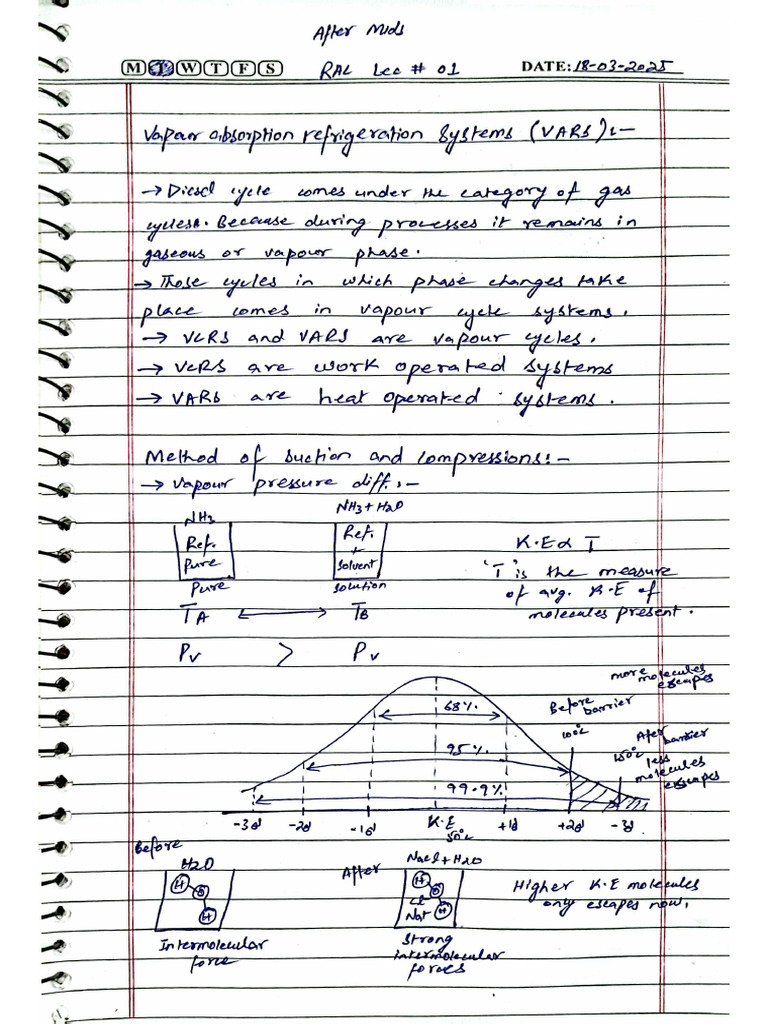 After Mids
M T W T F S
RAC Lec # 01
DATE: 18-03-2025
Vapour absorption refrigeration systems (VARS):-
→ Diesel cycle comes under the category of gas
cycles. Because during processes it remains in
gaseous or vapour phase.
→ Those cycles in which phase changes take
place comes in vapour cycle systems.
→ VCRS and VARS are vapour cycles.
→ VCRS are work operated systems
→ VARS are heat operated systems.
Method of suction and compressions:-
→ Vapour pressure diff.:-
NH3
NH3+H2O
Ref.
Pure
Ref.
+
solvent
Pure
solution
K.E α T
'T' is the measure
of avg. K.E of
molecules present.
TA ⟷ TB
Pv > Pv
more molecules
escapes
Before
barrier
100°C
After
barrier
150°C
less
molecules
escapes
68%
95%
99.9%
-3σ -2σ -1σ K.E +1σ +2σ -3σ
50°C
Before
H2O
H O H
Intermolecular
force
After
NaCl + H2O
H O H
Cl
Na+
Strong
intermolecular
forces
Higher K.E molecules
only escapes now.